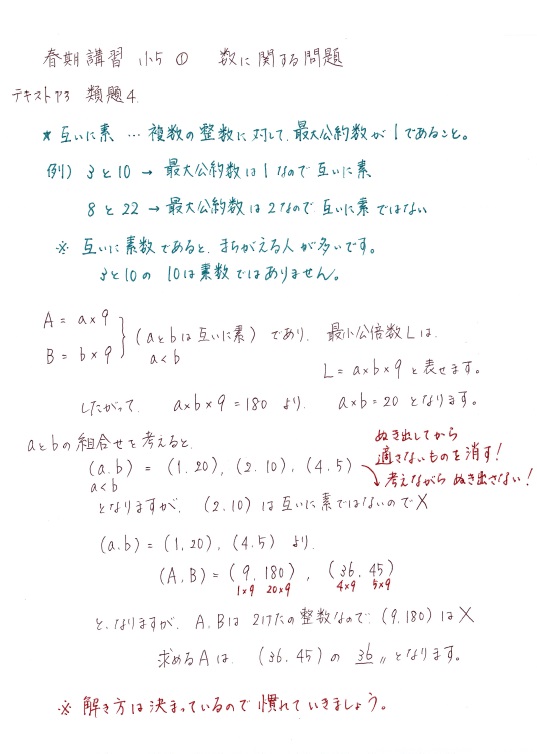 春期講習 小5 ① 数に関する問題
テキストP3 類題4.
* 互いに素 … 複数の整数に対して、最大公約数が1であること。
例) 3と10 → 最大公約数は1なので互いに素
8と22 → 最大公約数は2なので互いに素ではない
※ 互いに素数であると、まちがえる人が多いです。
3と10の 10は素数ではありません。
A = a×9
B = b×9
(aとbは互いに素) であり、最小公倍数Lは、
a<b
L = a×b×9 と表せます。
したがって、 a×b×9 = 180 より、 a×b = 20 となります。
aとbの組合せを考えると、
(a.b) = (1.20), (2.10), (4.5)
a<b
ぬき出してから
適さないものを消す!
考えながら ぬき出さない!
となりますが、(2.10)は互いに素ではないので×
(a.b) = (1.20), (4.5) より、
(A,B) = (9,180), (36,45)
1×9 20×9 4×9 5×9
と、なりますが、A,Bは 2けたの整数なので、(9.180)は×
求めるAは、(36.45)の 36〃となります。
※ 解き方は決まっているので慣れていきましょう。